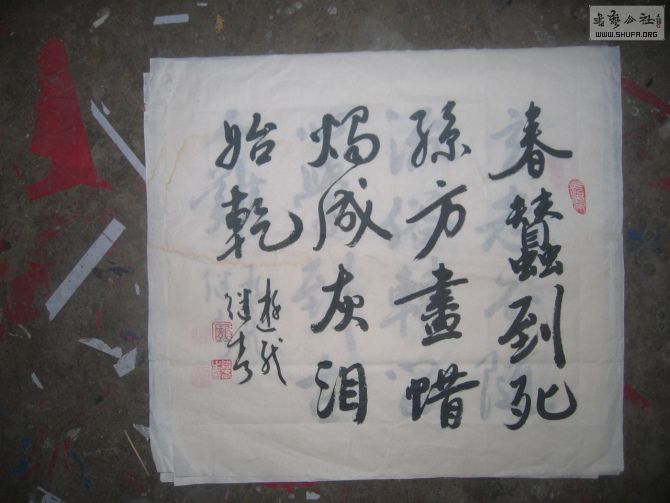 春蠶到死
絲方盡蜡
燭成灰泪
始乾
書藝公社
WWW.SHUFA.ORG